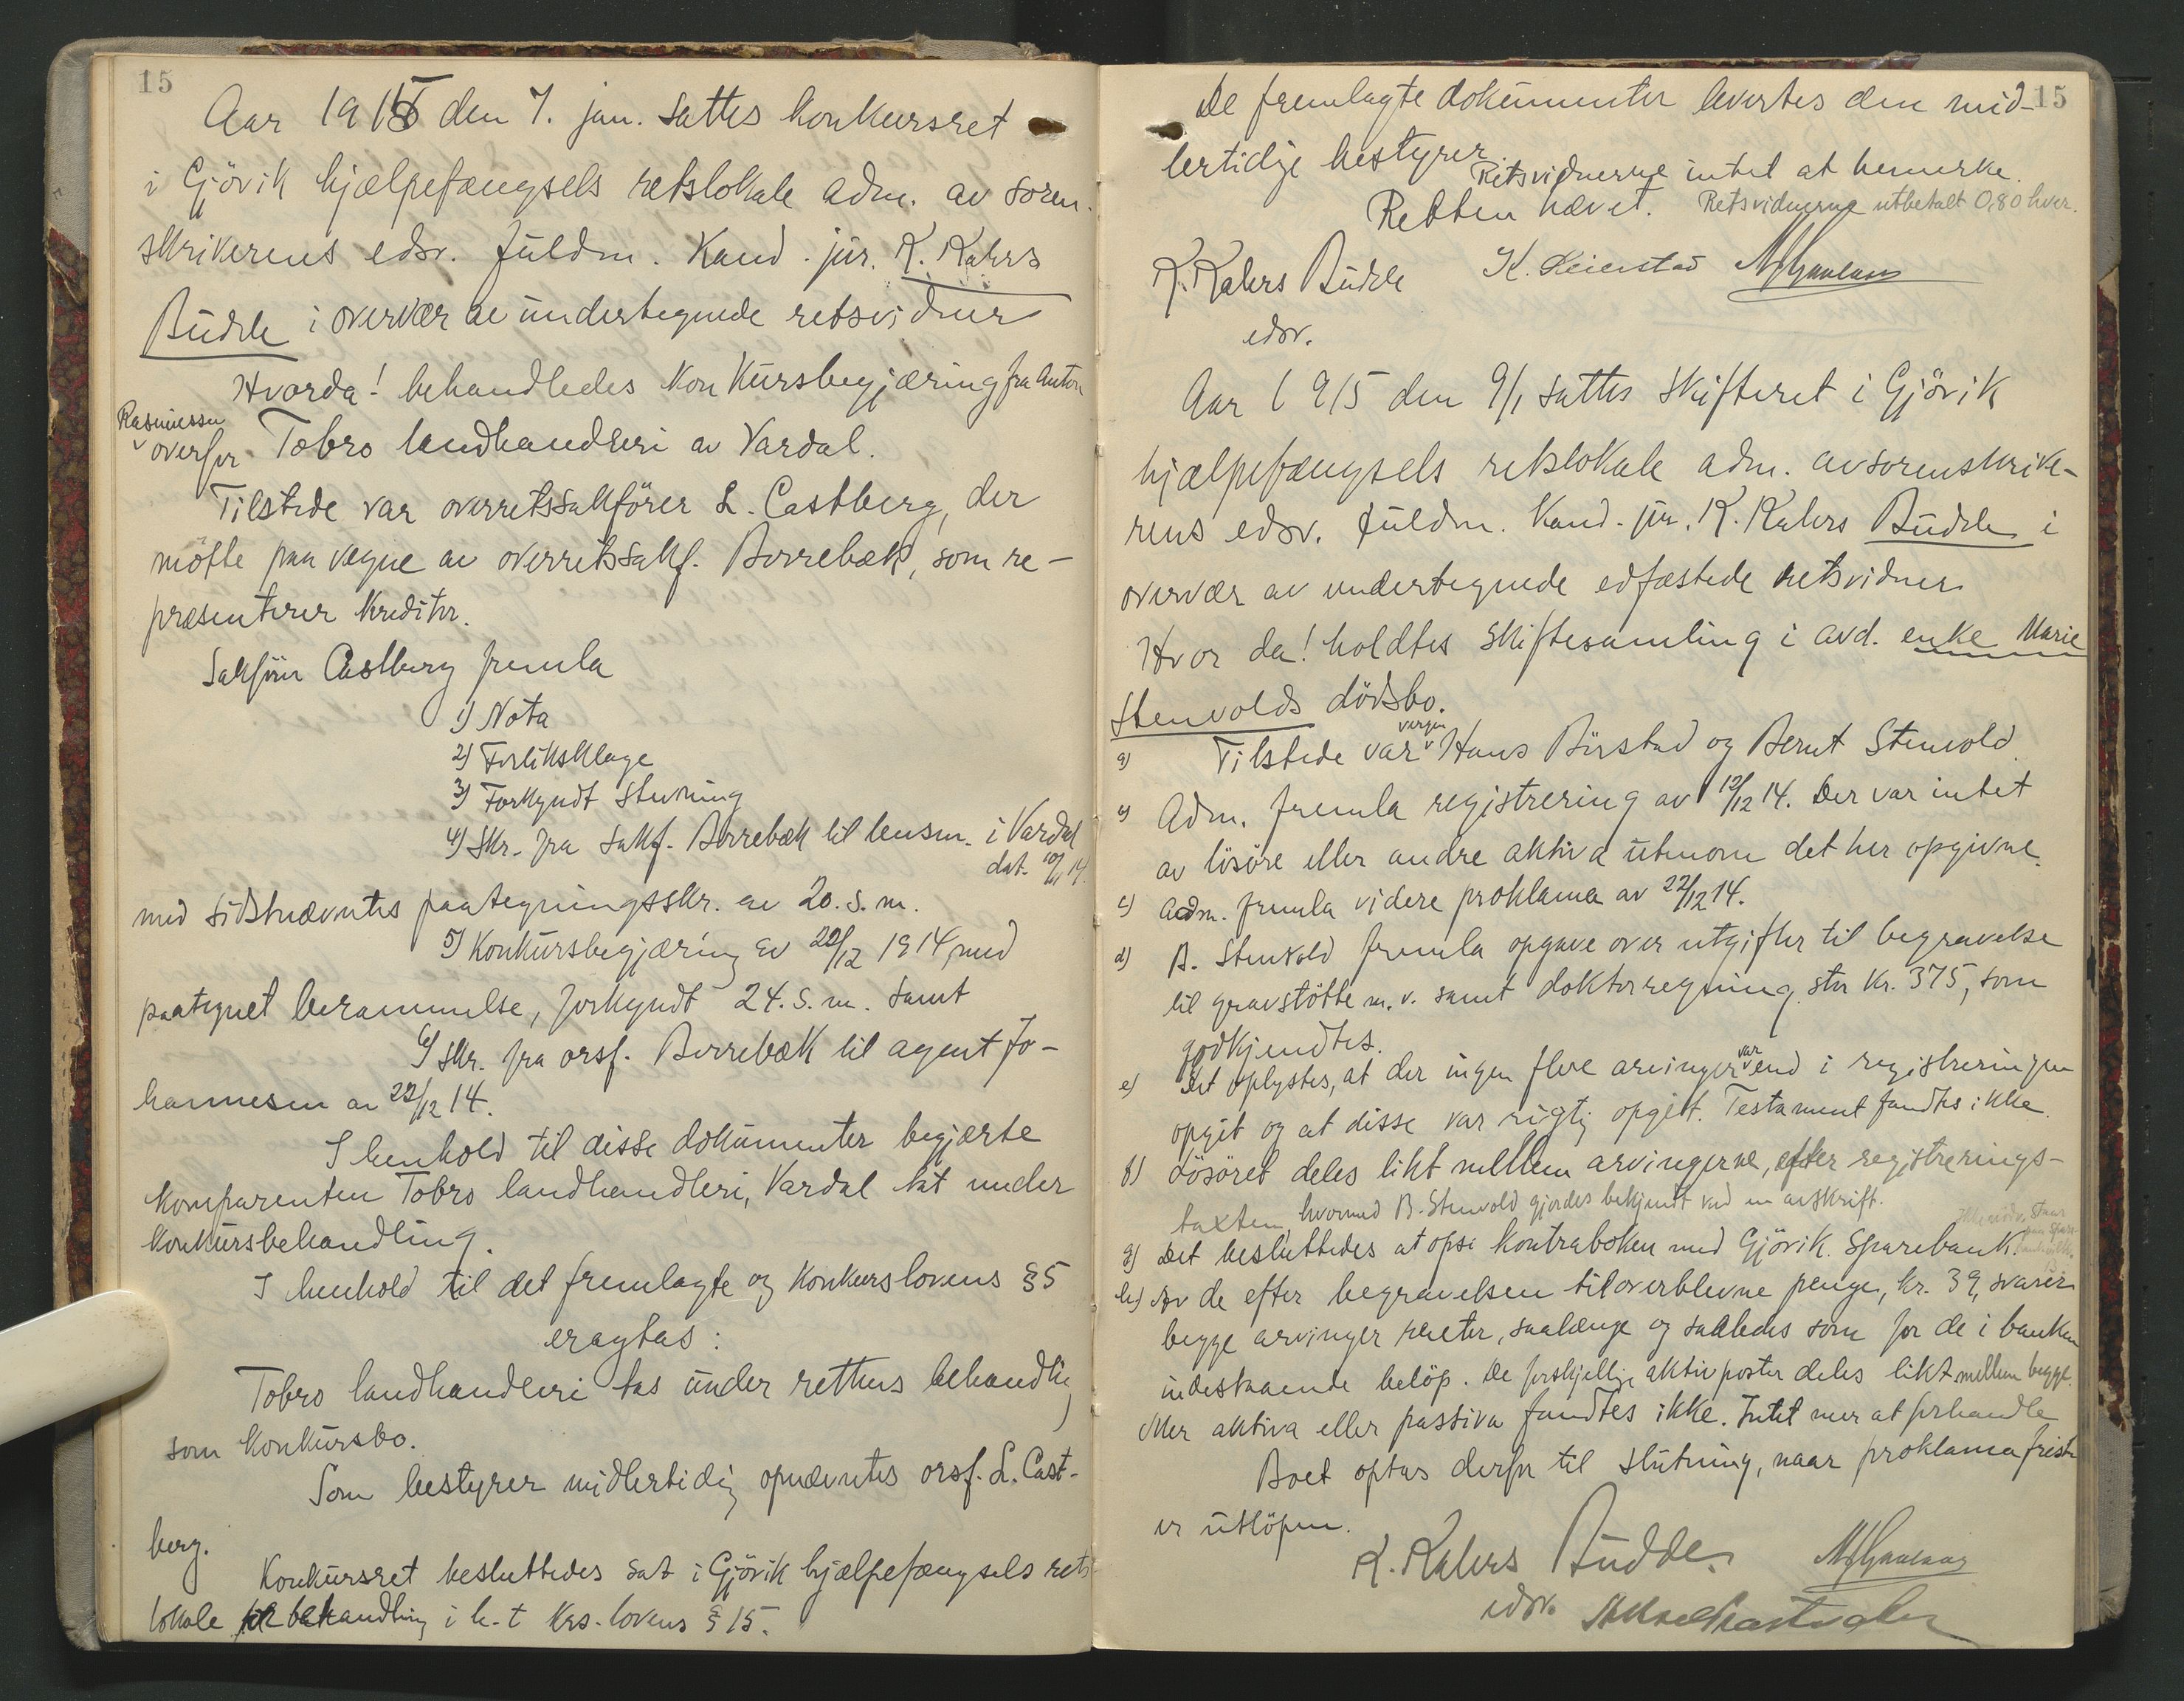 15
Aar 1915 den 7. jan. sattes konkursret
i Gjövik hjælpefængsels retslokale adm. av soren-
skriverens edsv. fuldm. Kand. jur. K. Kahrs
Budde i overvær av undertegnede retsvidner
Hvorda! behandledes konkursbegjæring fra Anton
Rasmussen
overfor Tobro landhandleri av Vardal.
Tilstede var overretssakförer L. Castberg, der
mötte paa vegne av overretssakf. Borrebæk, som re-
præsenterer kreditor.
Sakförer Castberg fremla
1) Nota
2) Forliksklage
3) Forkyndt stevning
4) Skr. fra sakf. Borrebæk til lensm. i Vardal
dat. 10/11 14
med sidstnævntes paategningsskr. av 20. s. m.
5) Konkursbegjæring av 22/12 1914, med
paategnet berammelse, forkyndt 24. s. m. samt
6) Skr. fra orsf. Borrebæk til agent Jo-
hannesen av 22/12 14.
I henhold til disse dokumenter begjærte
komparenten Tobro landhandleri, Vardal tat under
konkursbehandling.
I henhold til det fremlagte og konkurslovens § 5
eragtas:
Tobro landhandleri tas under rettens behandling
som konkursbo.
Som bestyrer midlertidig opnævntes orsf. L. Cast-
berg.
Konkursret besluttedes sat i Gjövik hjælpefængsels rets
lokale til behandling i h. t. krs. lovens § 15.
15
De fremlagte dokumenter levertes den mid-
lertidige bestyrer.
Retsvidnerne intet at bemerke.
Retten hævet. Retsvidnerne utbetalt 0,80 hver.
K. Kahrs Budde K.
edsv.
Aar 1915 den 9/1 sattes skifteret i Gjövik
hjælpefængsels retslokale adm. av sorenskrive-
rens edsv. fuldm. Kand. jur. K. Kahrs Budde i
overvær av undertegnede edfæstede retsvidner
Hvor da! holdtes skiftesamling i avd. enke Marie
Stenvolds dödsbo.
vergen
a) Tilstede var Hans Börstad og Bernt Stenvold.
Adm. fremla registrering av 12/12 14. Der var intet
av lösöre eller andre aktiva utenom det her opgivne.
c) Adm. fremla videre proklama av 22/12 14.
d) B. Stenvold fremla opgave over utgifter til begravelse
til gravstötte m. v. samt doktorregning, stor kr. 375, som
godkjendtes.
var
e) Det oplystes, at der ingen flere arvinger end i registreringen
opgit og at disse var rigtig opgit. Testament fandtes ikke.
f) Lösöret deles likt mellem arvingerne, efter registrerings-
taxten, hvormed B. Stenvold gjordes bekjendt ved en avskrift.
g) Det besluttedes at opsi kontraboken med Gjövik Sparebank.
h) Av de efter begravelsen tiloverblevne penge, kr. 39, svarer
begge arvinger renter, saalænge og saaledes som for de i banken
indestaaende belöp. De forskjellige aktivposter deles likt mellem begge.
Mer aktiva eller passiva fandtes ikke. Intet mer at forhandle
Boet optas derfor til slutning, naar proklamafristen
er utlöpen.
K. Kahrs Budde.
edsv.